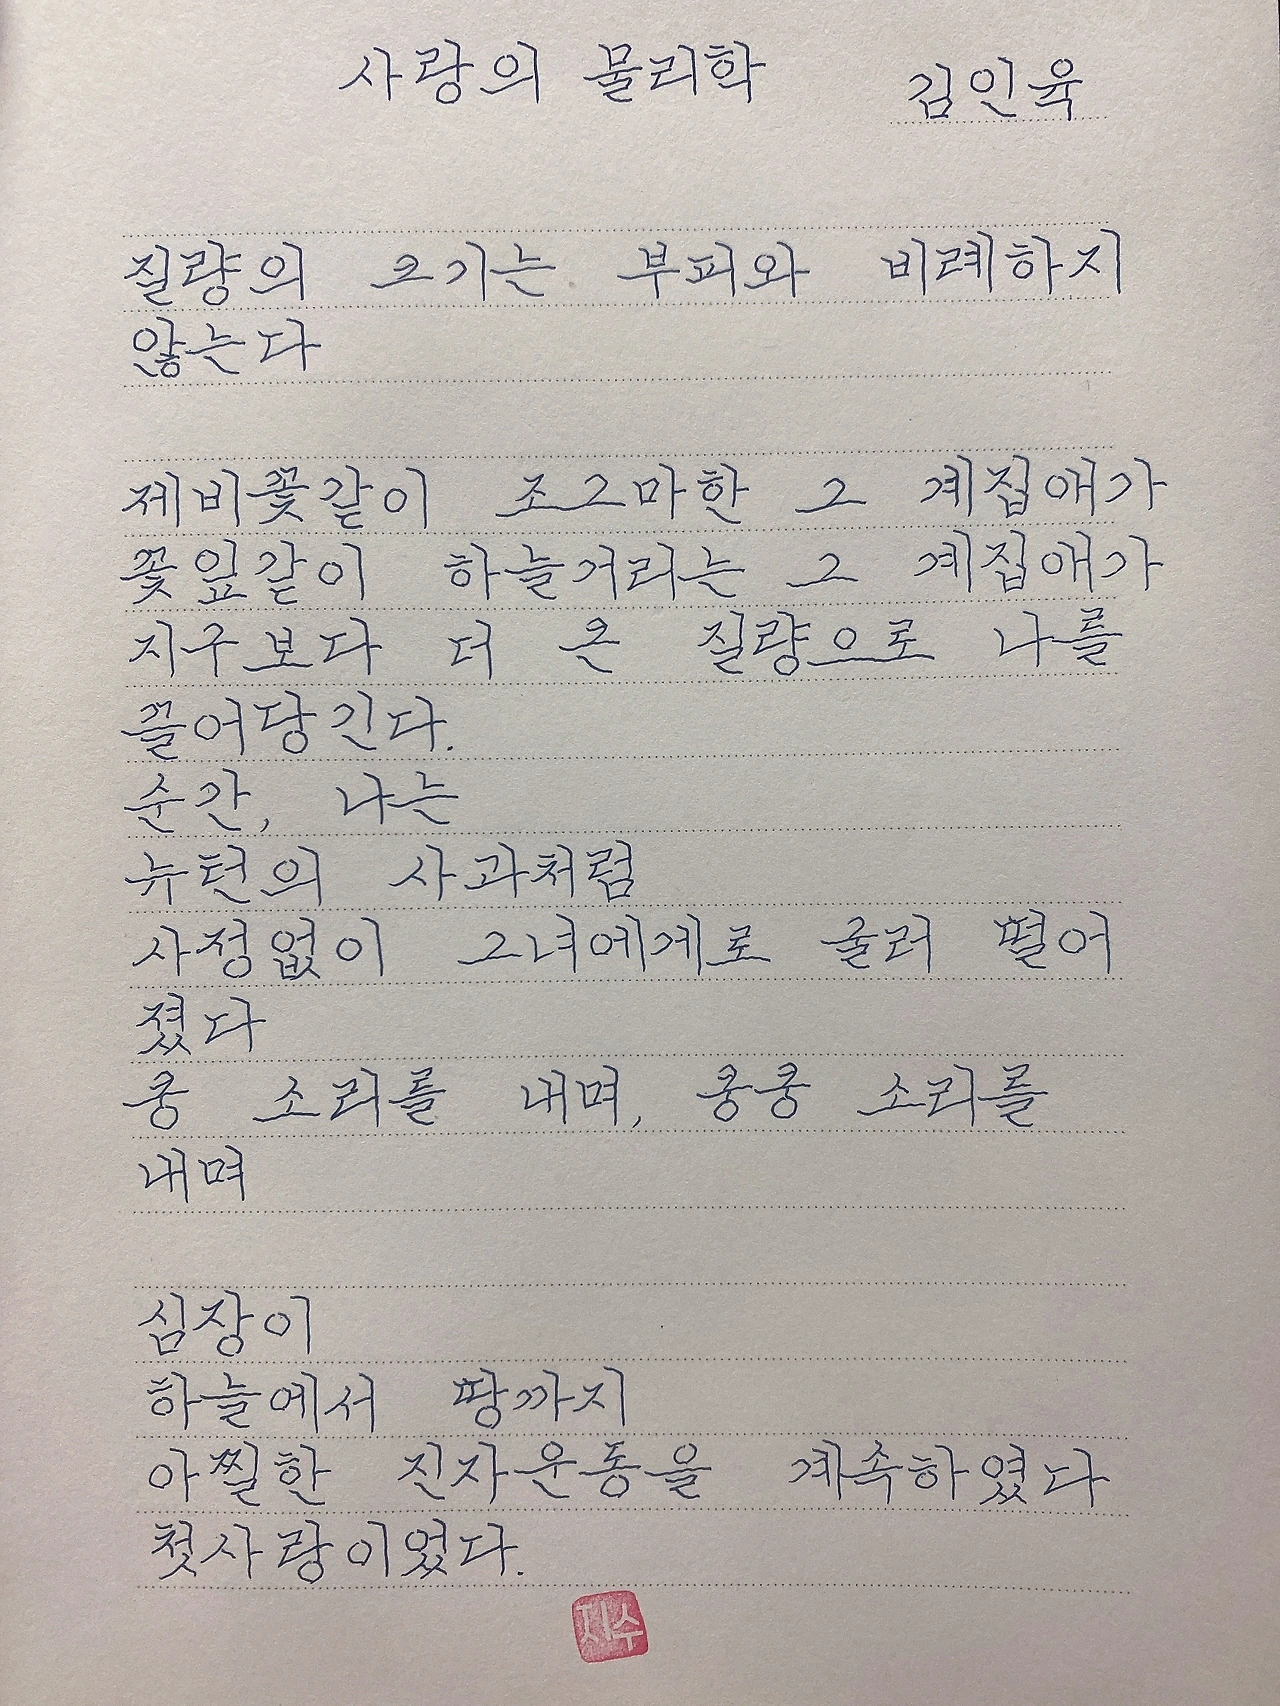 사랑의 물리학 김인육
질량의 크기는 부피와 비례하지
않는다
제비꽃같이 조그마한 그 계집애가
꽃잎같이 하늘거리는 그 계집애가
지구보다 더 큰 질량으로 나를
끌어당긴다.
순간, 나는
뉴턴의 사과처럼
사정없이 그녀에게로 굴러 떨어
졌다
쿵 소리를 내며, 쿵쿵 소리를
내며
심장이
하늘에서 땅까지
아찔한 진자운동을 계속하였다
첫사랑이었다.
지수